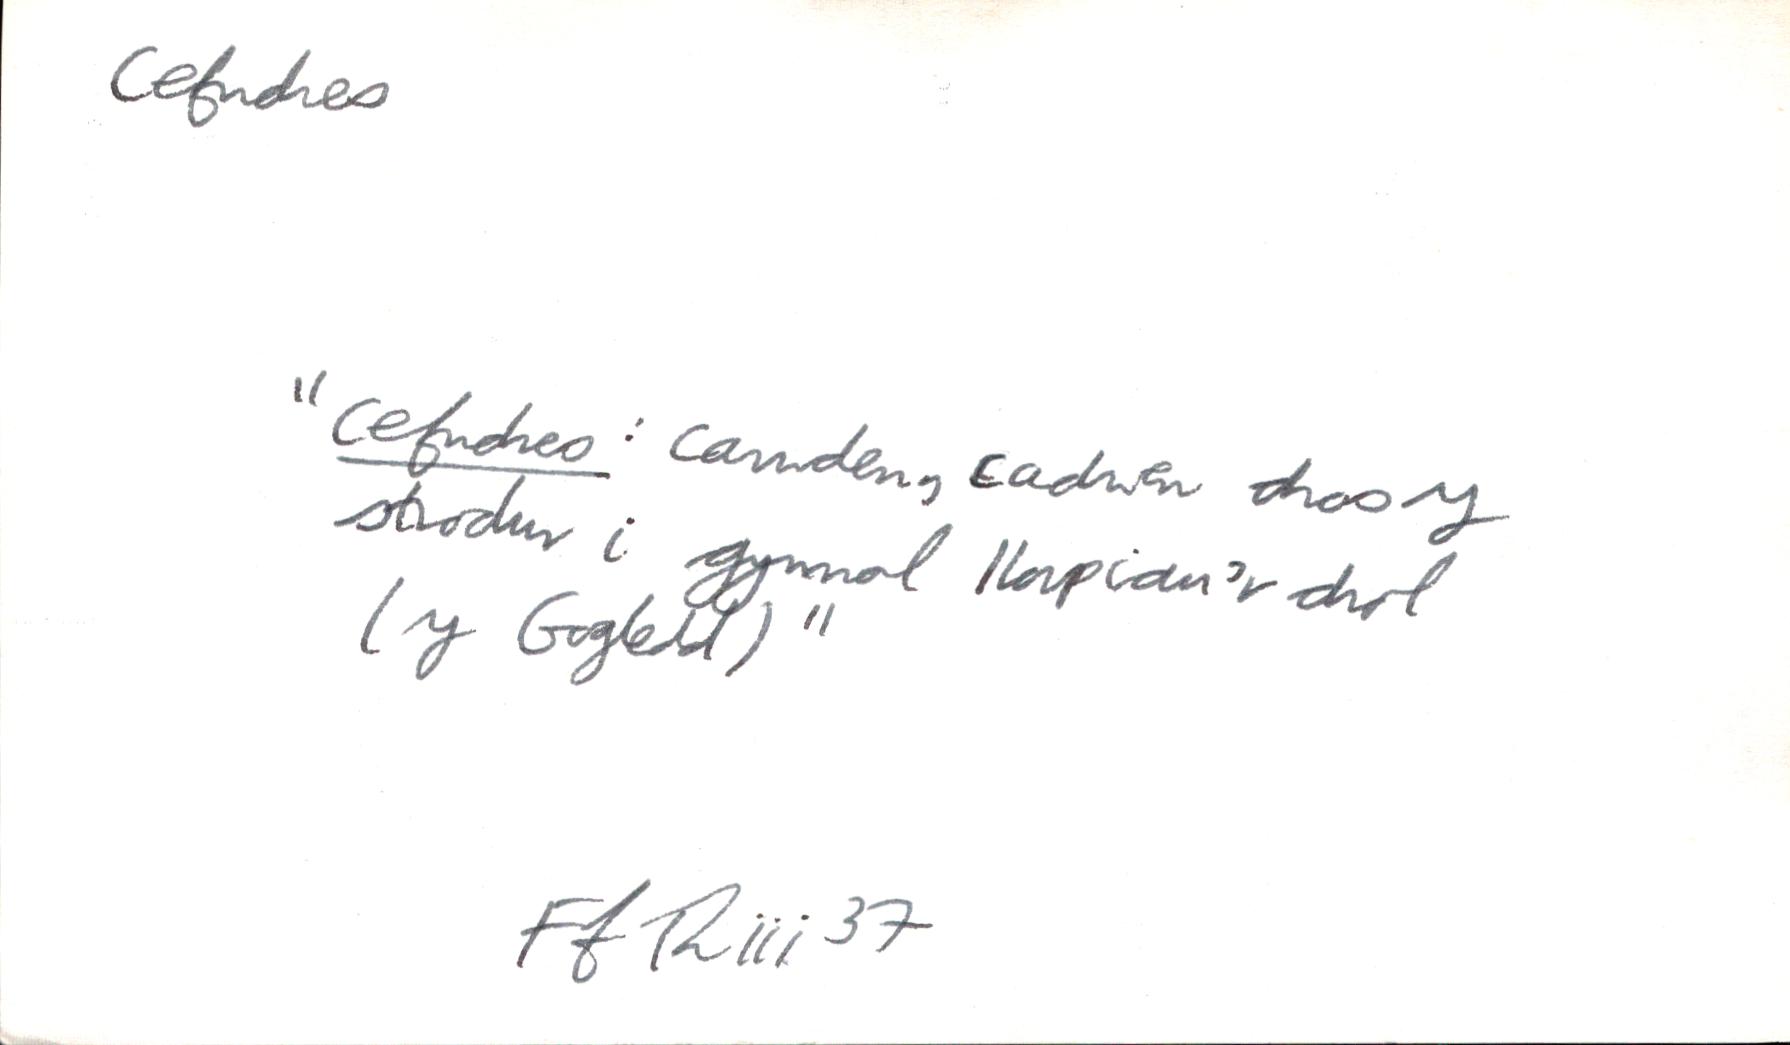 Cefndres
"Cefndres: carwden, cadwen dros y
strodur i gynnal llorpiau'r drol
(y Gogledd)"
Ff Th iii 37